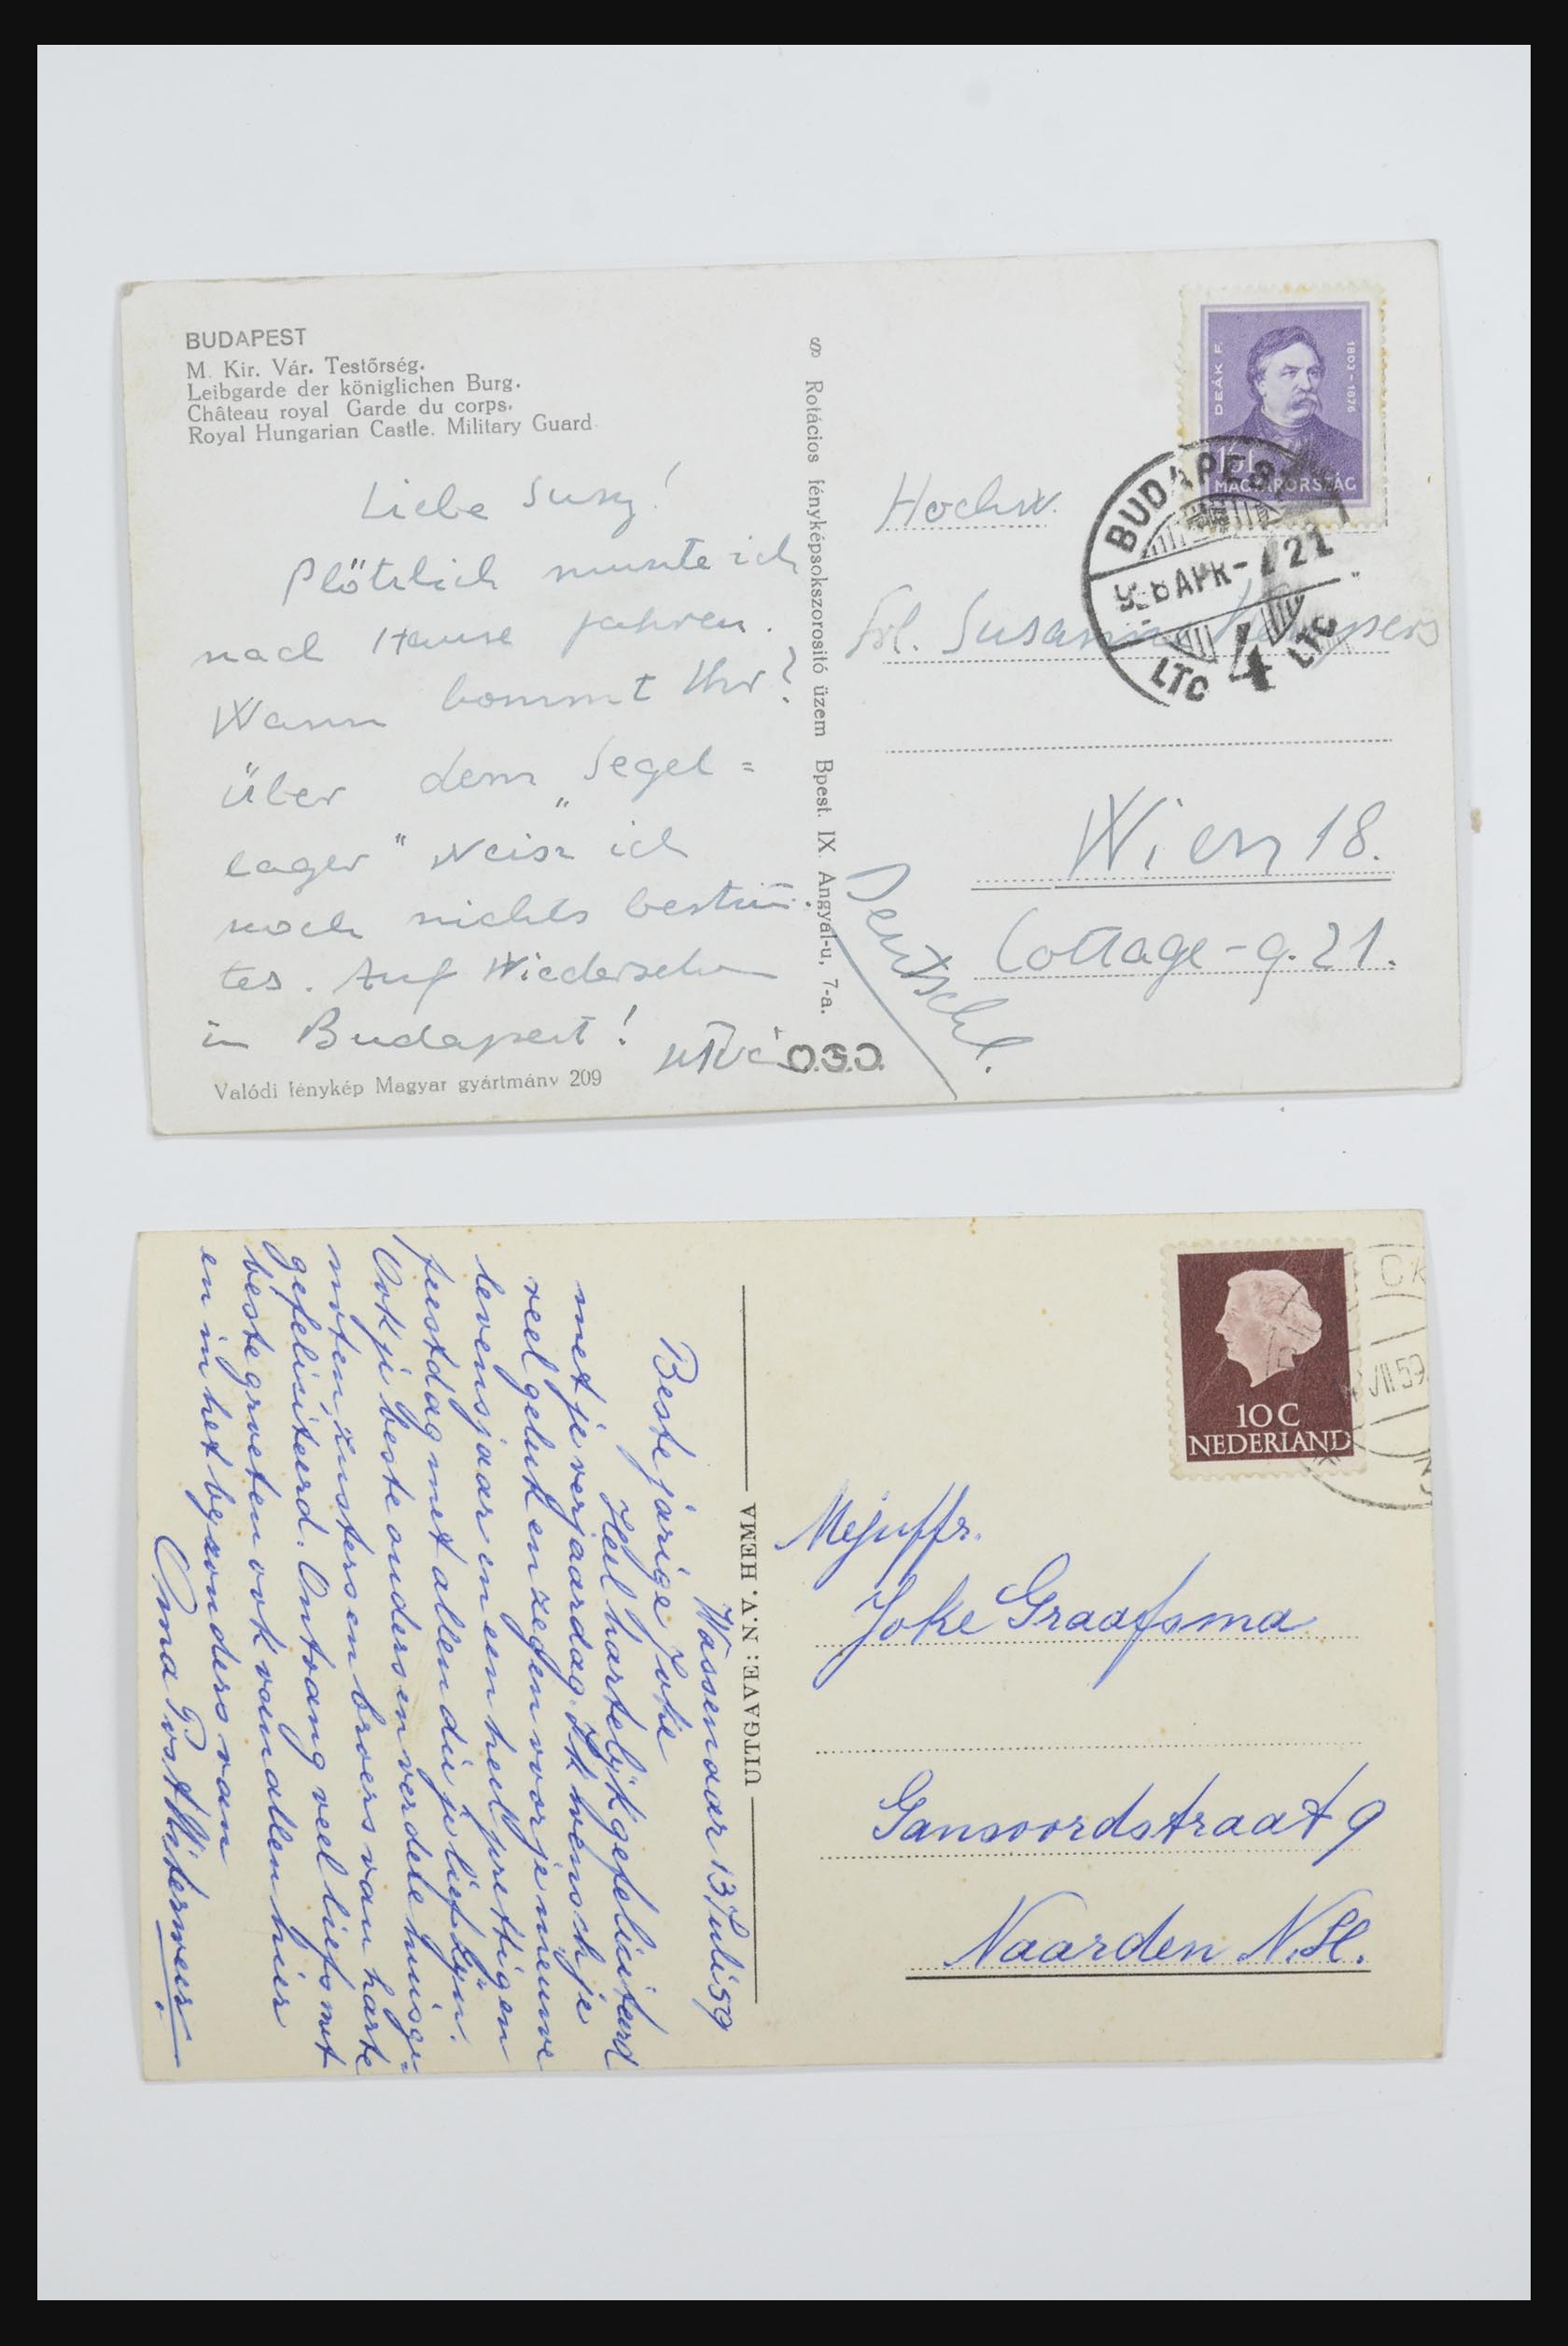 BUDAPEST
M. Kir. Vár. Testőrség.
Leibgarde der königlichen Burg.
Château royal Garde du corps.
Royal Hungarian Castle. Military Guard.
Liebe Susy!
Plötzlich musste ich
nach Hause fahren.
Wann kommt Ihr?
Über dem „Segel=
lager" weiss ich
noch nichts bestim̄
tes. Auf Wiedersehen
in Budapest!
Valódi fénykép Magyar gyártmány 209
O.S.O.
§ Rotációs fényképsokszorositó üzem Bpest. IX. Angyal-u, 7-a.
DEÁK F.
1803-1876
MAGYARORSZÁG
BUDAPEST
APR
21
LTC 4 LTC
Hochw.
Frl. Susanne
Wien 18.
Cottage-g. 21.
Deutschl.
Wassenaar 13 Juli 59
Beste jarige Joke
Heel hartelijk gefeliciteerd
met je verjaardag. Ik wensch je
veel geluk en zegen voor je nieuwe
levensjaar en een heel prettigen
feestdag met allen die je lief zijn.
Ook je beste ouders en verdele huisge=
noten, zusters en broers van harte
gefeliciteerd. Ontvang veel liefs met
beste groeten ook van allen hier
en in het byzonders van
Oma Post Uiterweer.
UITGAVE: N.V. HEMA
10 C
NEDERLAND
VII 59
Mejuffr.
Joke Graafsma
Gansoordstraat 9
Naarden N.H.